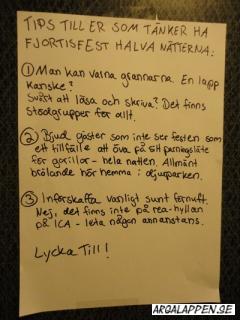 TIPS TILL ER SOM TÄNKER HA
FJORTISFEST HALVA NÄTTERNA:
① Man kan varna grannarna. En lapp
kanske?
Svårt att läsa och skriva? Det finns
stödgrupper för allt.
② Bjud gäster som inte ser festen som
ett tillfälle att öva på sitt parningsläte
för gorillor - hela natten. Allmänt
brölande hör hemma i djurparken.
③ Införskaffa vanligt sunt förnuft.
Nej, det finns inte på rea-hyllan
på ICA - leta någon annanstans.
Lycka Till!
ARGALAPPEN.SE